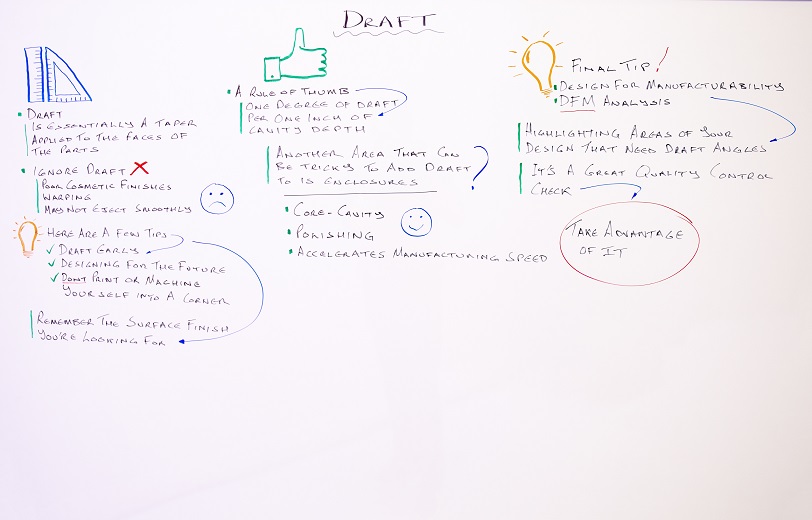 DRAFT
• DRAFT
IS ESSENTIALLY A TAPER
APPLIED TO THE FACES OF
THE PARTS
• IGNORE DRAFT
POOR COSMETIC FINISHES
WARPING
MAY NOT EJECT SMOOTHLY
HERE ARE A FEW TIPS
✓ DRAFT EARLY
✓ DESIGNING FOR THE FUTURE
✓ DON'T PRINT OR MACHINE
YOURSELF INTO A CORNER
REMEMBER THE SURFACE FINISH
YOU'RE LOOKING FOR
• A RULE OF THUMB
ONE DEGREE OF DRAFT
PER ONE INCH OF
CAVITY DEPTH
ANOTHER AREA THAT CAN
BE TRICKY TO ADD DRAFT
TO IS ENCLOSURES ?
• CORE-CAVITY
• POLISHING
• ACCELERATES MANUFACTURING SPEED
FINAL TIP!
• DESIGN FOR MANUFACTURABILITY
• DFM ANALYSIS
HIGHLIGHTING AREAS OF YOUR
DESIGN THAT NEED DRAFT ANGLES
IT'S A GREAT QUALITY CONTROL
CHECK
TAKE ADVANTAGE
OF IT